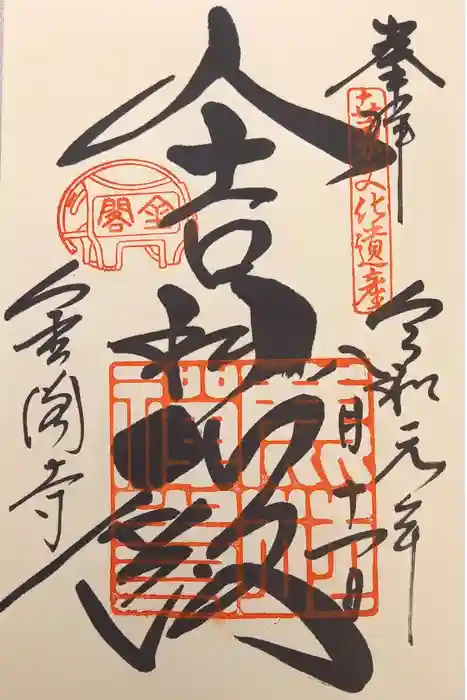 奉拝
世界文化遺産
令和元年
八月十一日
舎利殿
金閣
金閣寺